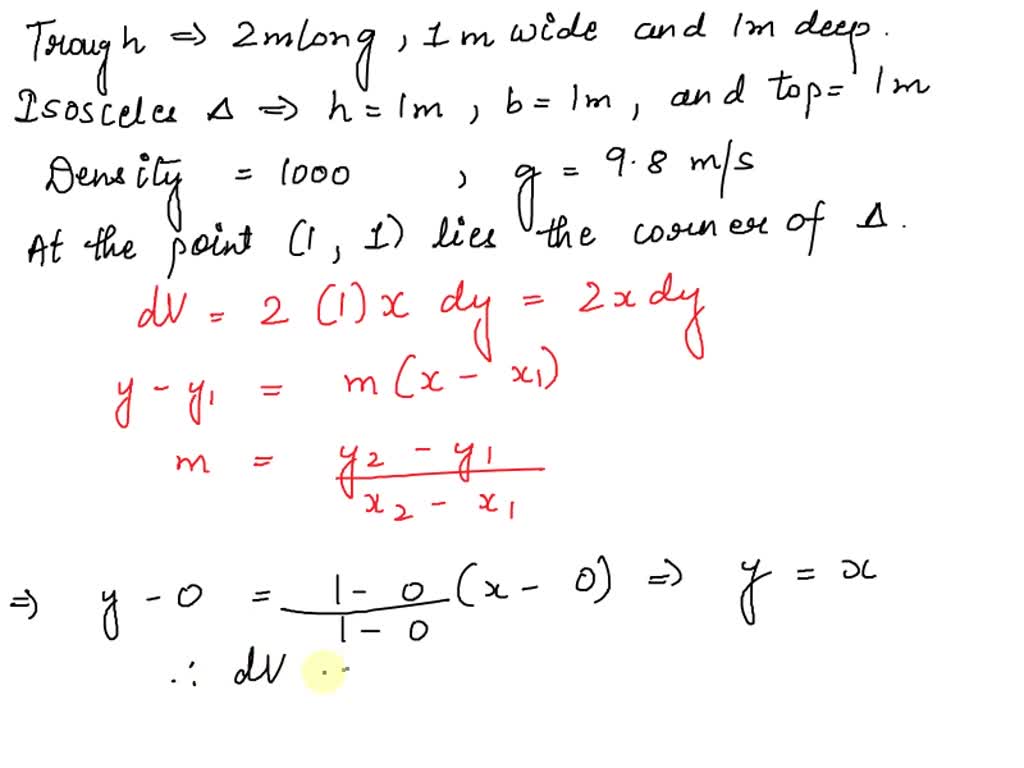 Trough ⇒ 2m long, 1m wide and 1m deep.
Isosceles Δ ⇒ h = 1m, b = 1m, and top = 1m
Density = 1000 , g = 9.8 m/s
At the point (1, 1) lies the corner of Δ.
dV = 2 (1) x dy = 2x dy
y - y₁ = m(x - x₁)
m = (y₂ - y₁) / (x₂ - x₁)
⇒ y - 0 = (1 - 0) / (1 - 0) (x - 0) ⇒ y = x
∴ dV